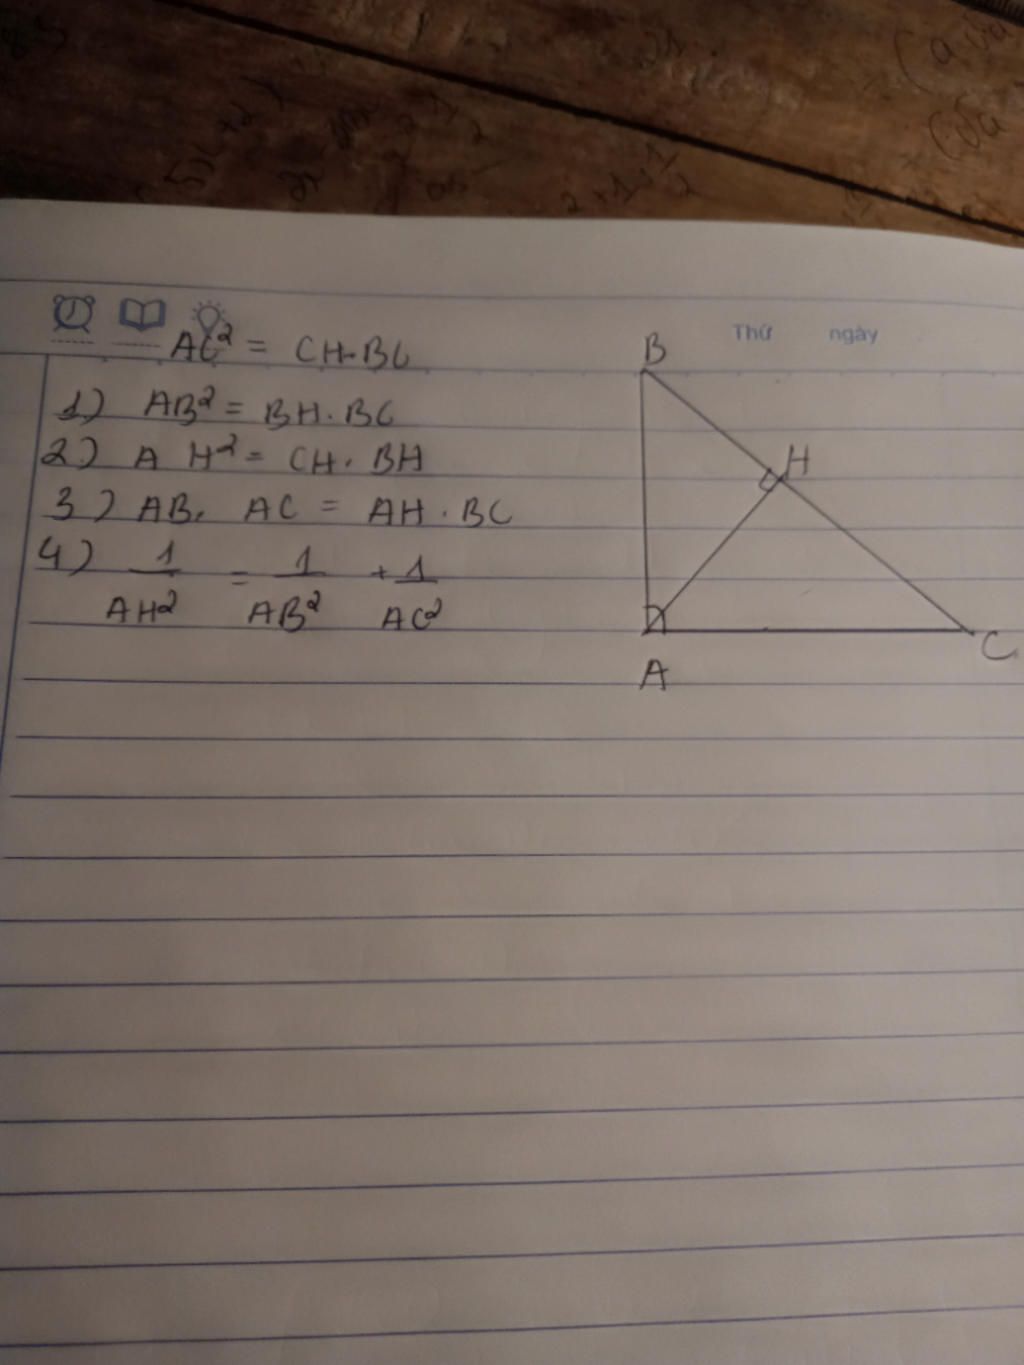 Thứ ngày
AC² = CH.BC
1) AB² = BH.BC
2) A H² = CH.BH
3) AB. AC = AH.BC
4) 1/AH² = 1/AB² + 1/AC²
B
H
A
C